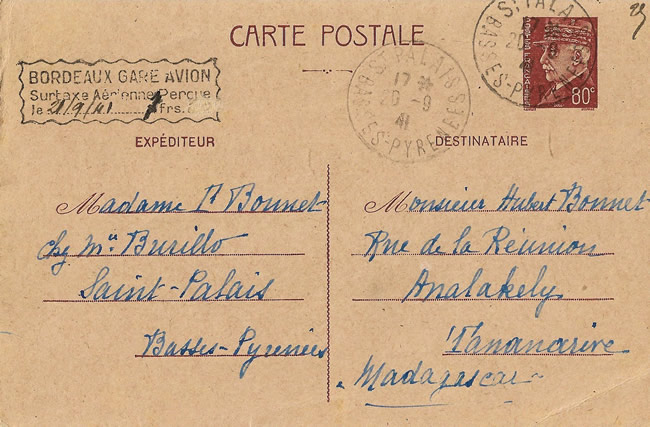 CARTE POSTALE
BORDEAUX GARE AVION
Surtaxe Aérienne Perçue
le 21/9/41 frs.
ST PALAIS
17 *
20 -9
41
BASSES-PYRENEES
ST PALAIS
20 9
BASSES-PYRENEES
80c
29
EXPÉDITEUR
Madame P. Bonnet
chez Mme Burillo
Saint-Palais
Basses-Pyrenées
DESTINATAIRE
Monsieur Hubert Bonnet
Rue de la Réunion
Analakely
Tananarive
Madagascar